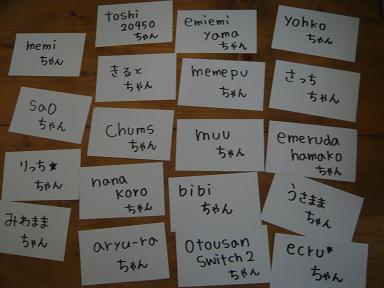 memi
ちゃん
toshi
20950
ちゃん
emiemi
yama
ちゃん
yohko
ちゃん
きると
ちゃん
memepu
ちゃん
さっち
ちゃん
sao
ちゃん
chums
ちゃん
muu
ちゃん
emeruda
hamako
ちゃん
りっち★
ちゃん
nana
koro
ちゃん
bibi
ちゃん
うさまま
ちゃん
みわまま
ちゃん
aryu-ra
ちゃん
otousan
switch2
ちゃん
ecru*
ちゃん